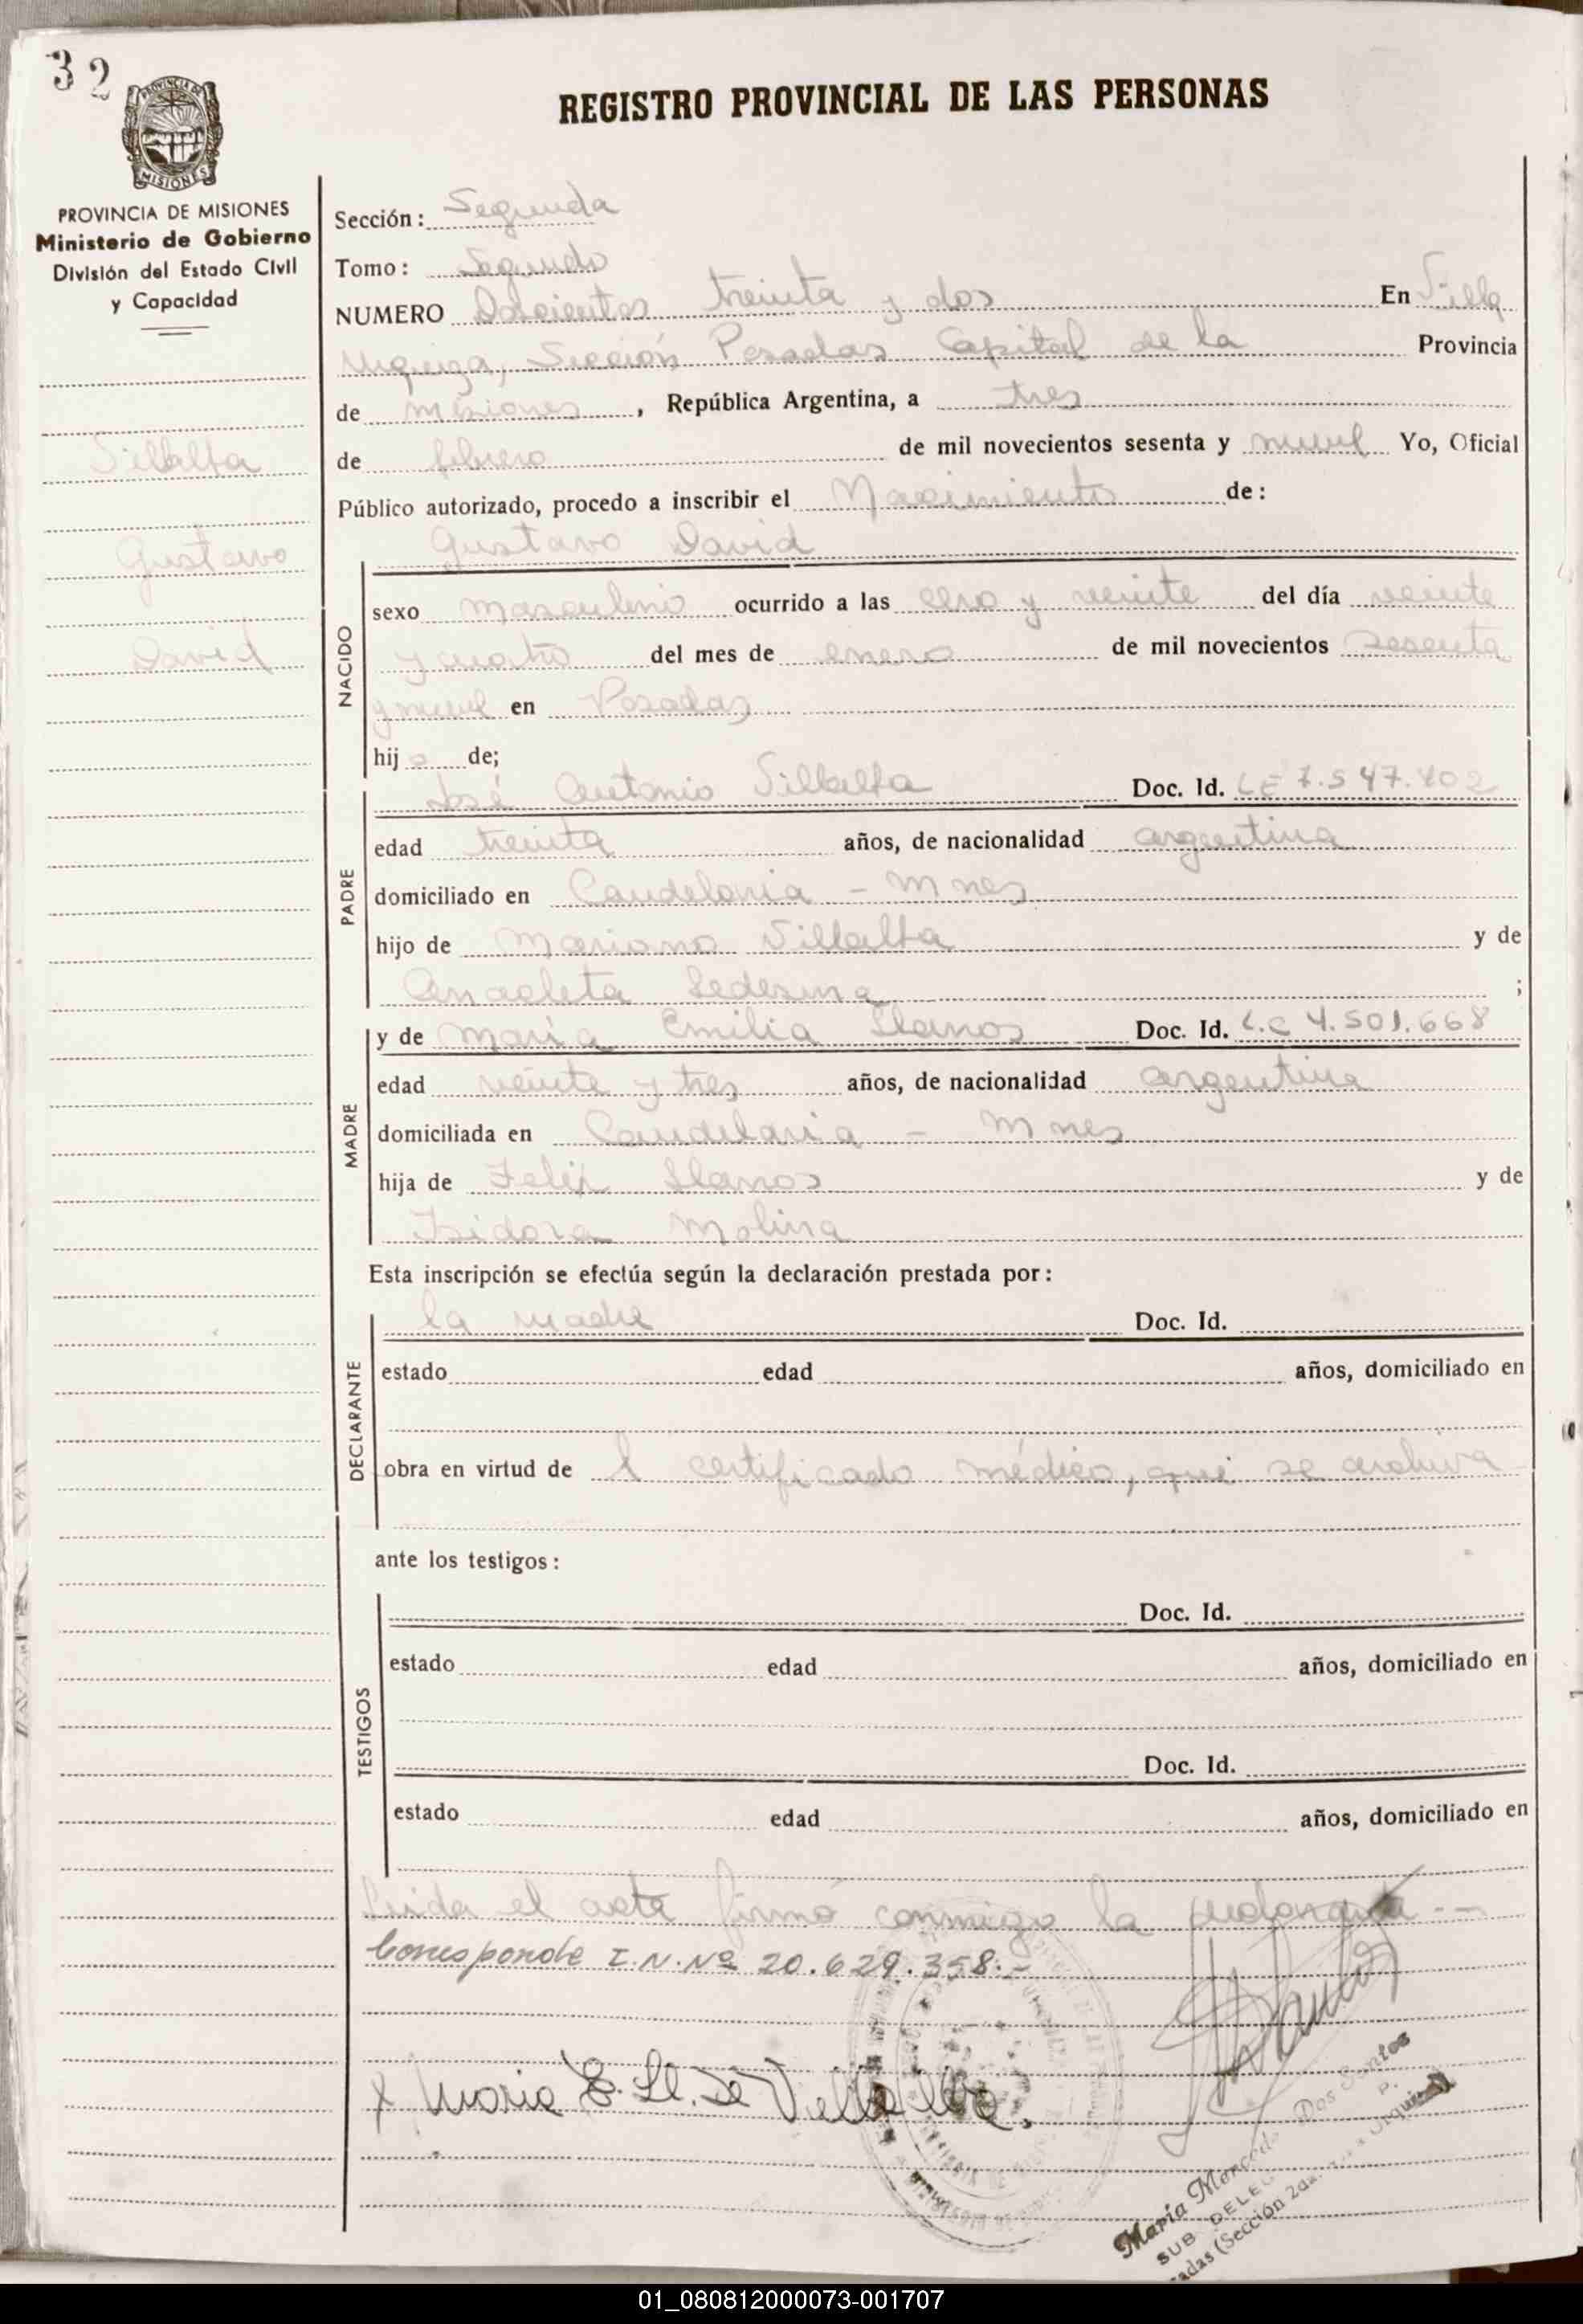 32
PROVINCIA DE
MISIONES
REGISTRO PROVINCIAL DE LAS PERSONAS
PROVINCIA DE MISIONES
Ministerio de Gobierno
División del Estado Civil
y Capacidad
Villalba
Gustavo
David
Sección: Segunda
Tomo: Segundo
NUMERO Doscientos treinta y dos En Villa
Urquiza, Sección Posadas Capital de la Provincia
de Misiones, República Argentina, a tres
de febrero de mil novecientos sesenta y nueve Yo, Oficial
Público autorizado, procedo a inscribir el Nacimiento de:
Gustavo David
NACIDO
sexo masculino ocurrido a las cero y veinte del día veinte
y cuatro del mes de enero de mil novecientos sesenta
y nueve en Posadas
hijo de;
PADRE
José Antonio Villalba Doc. Id. LE 7.547.802
edad treinta años, de nacionalidad argentina
domiciliado en Candelaria - Mnes
hijo de Mariano Villalba y de
Anacleta Ledesma ;
MADRE
y de María Emilia Llanos Doc. Id. L.C 4.501.668
edad veinte y tres años, de nacionalidad argentina
domiciliada en Candelaria - Mnes
hija de Felix Llanos y de
Isidora Molina
Esta inscripción se efectúa según la declaración prestada por:
DECLARANTE
la madre Doc. Id.
estado edad años, domiciliado en
obra en virtud de l certificado médico, que se archiva
ante los testigos:
TESTIGOS
Doc. Id.
estado edad años, domiciliado en
Doc. Id.
estado edad años, domiciliado en
Leida el acta firmó conmigo la
Corresponde I.N.Nº 20.629.358.-
X Maria E. Ll. De Villalba.
María Mercedes Dos Santos
SUB DELEG
adas (Sección 2da. Urquiza)
01_080812000073-001707